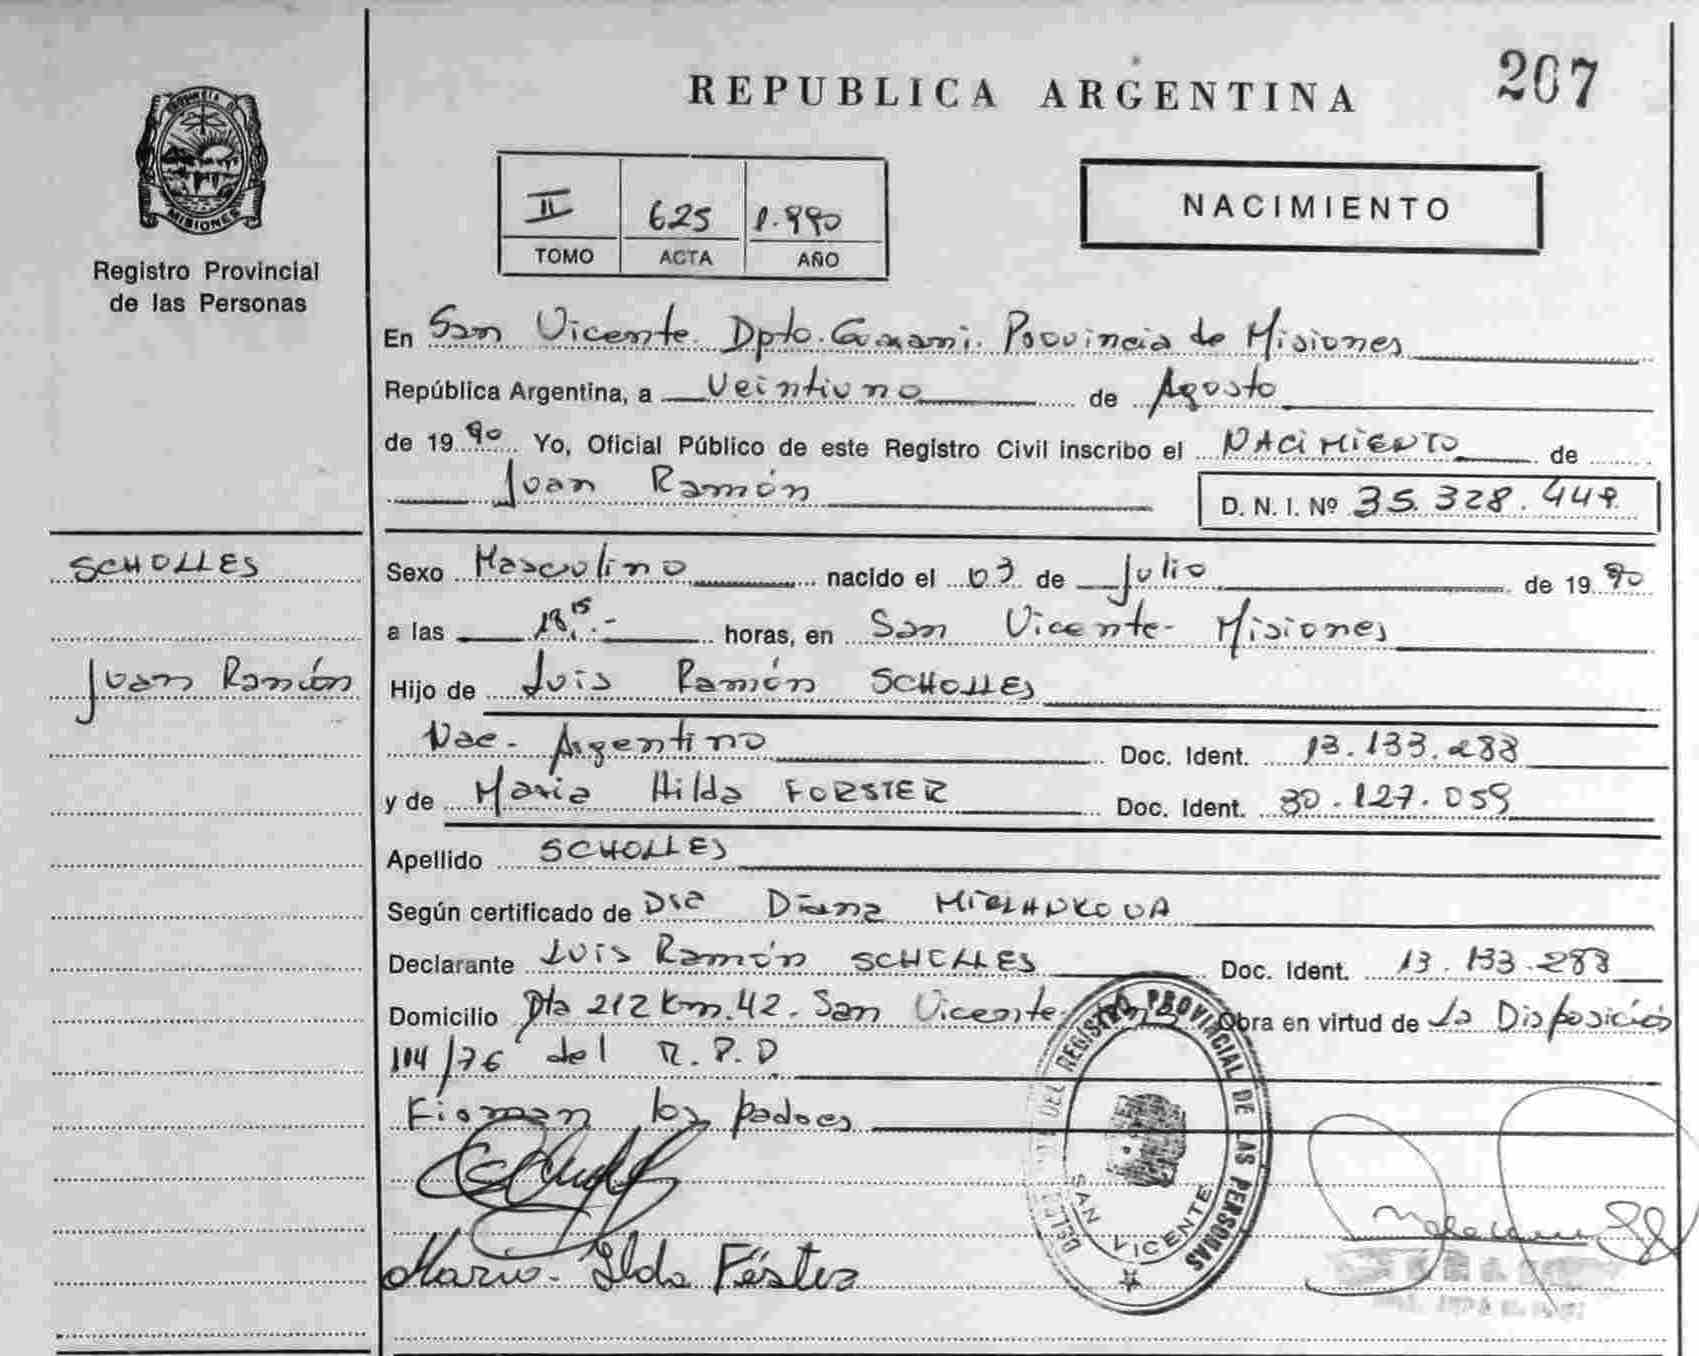 207
REPUBLICA ARGENTINA
PROVINCIA DE
MISIONES
Registro Provincial
de las Personas
II 625 1.990
TOMO ACTA AÑO
NACIMIENTO
En San Vicente. Dpto. Guaraní. Provincia de Misiones
República Argentina, a Veintiuno de Agosto
de 19 90 Yo, Oficial Público de este Registro Civil inscribo el NACIMIENTO de
Juan Ramón
D. N. I. Nº 35.328.449
SCHOLLES
Juan Ramón
Sexo Masculino nacido el 03 de Julio de 19 90
a las horas, en San Vicente - Misiones
Hijo de Luis Ramón SCHOLLES
Nac. Argentino Doc. Ident. 13.133.288
y de Maria Hilda FORSTER Doc. Ident. 30.127.059
Apellido SCHOLLES
Según certificado de Dra Diana
Declarante Luis Ramón SCHOLLES Doc. Ident. 13.133.288
Domicilio Pta 212 Km. 42. San Vicente Obra en virtud de La Disposición
104/76 del R.P.P
Firman los padres
Maria Ilda Férster
DEL REGISTRO PROVINCIAL DE LAS PERSONAS
SAN VICENTE